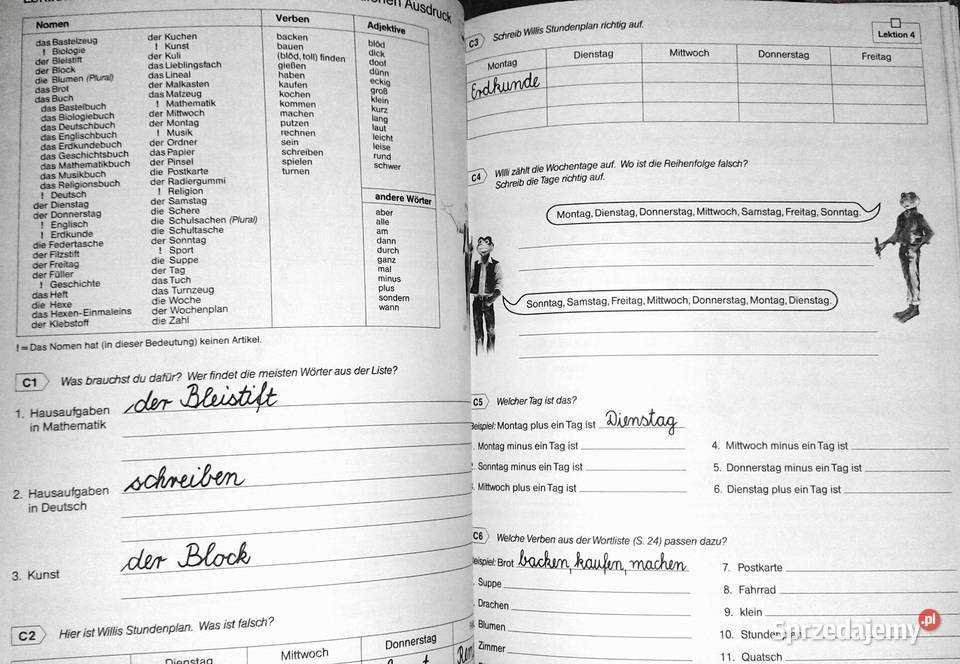 Ausdruck
Nomen
Verben
Adjektive
das Bastelzeug
! Biologie
der Bleistift
der Block
die Blumen (Plural)
das Brot
das Buch
das Bastelbuch
das Biologiebuch
das Deutschbuch
das Englischbuch
das Erdkundebuch
das Geschichtsbuch
das Mathematikbuch
das Musikbuch
das Religionsbuch
! Deutsch
der Dienstag
der Donnerstag
! Englisch
! Erdkunde
die Federtasche
der Filzstift
der Freitag
der Füller
! Geschichte
das Heft
die Hexe
das Hexen-Einmaleins
der Klebstoff
der Kuchen
! Kunst
der Kuli
das Lieblingsfach
das Lineal
der Malkasten
das Malzeug
! Mathematik
der Mittwoch
der Montag
! Musik
der Ordner
das Papier
der Pinsel
die Postkarte
der Radiergummi
! Religion
der Samstag
die Schere
die Schulsachen (Plural)
die Schultasche
der Sonntag
! Sport
die Suppe
der Tag
das Tuch
das Turnzeug
die Woche
der Wochenplan
die Zahl
backen
bauen
(blöd, toll) finden
gießen
haben
kaufen
kochen
kommen
machen
putzen
rechnen
sein
schreiben
spielen
turnen
blöd
dick
doof
dünn
eckig
groß
klein
kurz
lang
laut
leicht
leise
rund
schwer
andere Wörter
aber
alle
am
dann
durch
ganz
mal
minus
plus
sondern
wann
! = Das Nomen hat (in dieser Bedeutung) keinen Artikel.
C1 Was brauchst du dafür? Wer findet die meisten Wörter aus der Liste?
1. Hausaufgaben in Mathematik
der Bleistift
2. Hausaufgaben in Deutsch
schreiben
3. Kunst
der Block
C2 Hier ist Willis Stundenplan. Was ist falsch?
Dienstag Mittwoch Donnerstag
C3 Schreib Willis Stundenplan richtig auf.
Lektion 4
Montag Dienstag Mittwoch Donnerstag Freitag
Erdkunde
C4 Willi zählt die Wochentage auf. Wo ist die Reihenfolge falsch?
Schreib die Tage richtig auf.
Montag, Dienstag, Donnerstag, Mittwoch, Samstag, Freitag, Sonntag.
Sonntag, Samstag, Freitag, Mittwoch, Donnerstag, Montag, Dienstag.
C5 Welcher Tag ist das?
Beispiel: Montag plus ein Tag ist Dienstag
Montag minus ein Tag ist
Sonntag minus ein Tag ist
Mittwoch plus ein Tag ist
4. Mittwoch minus ein Tag ist
5. Donnerstag minus ein Tag ist
6. Dienstag plus ein Tag ist
C6 Welche Verben aus der Wortliste (S. 24) passen dazu?
Beispiel: Brot backen, kaufen, machen
Suppe
Drachen
Blumen
Zimmer
7. Postkarte
8. Fahrrad
9. klein
10. Stundenplan
11. Quatsch
Sprzedajemy.pl